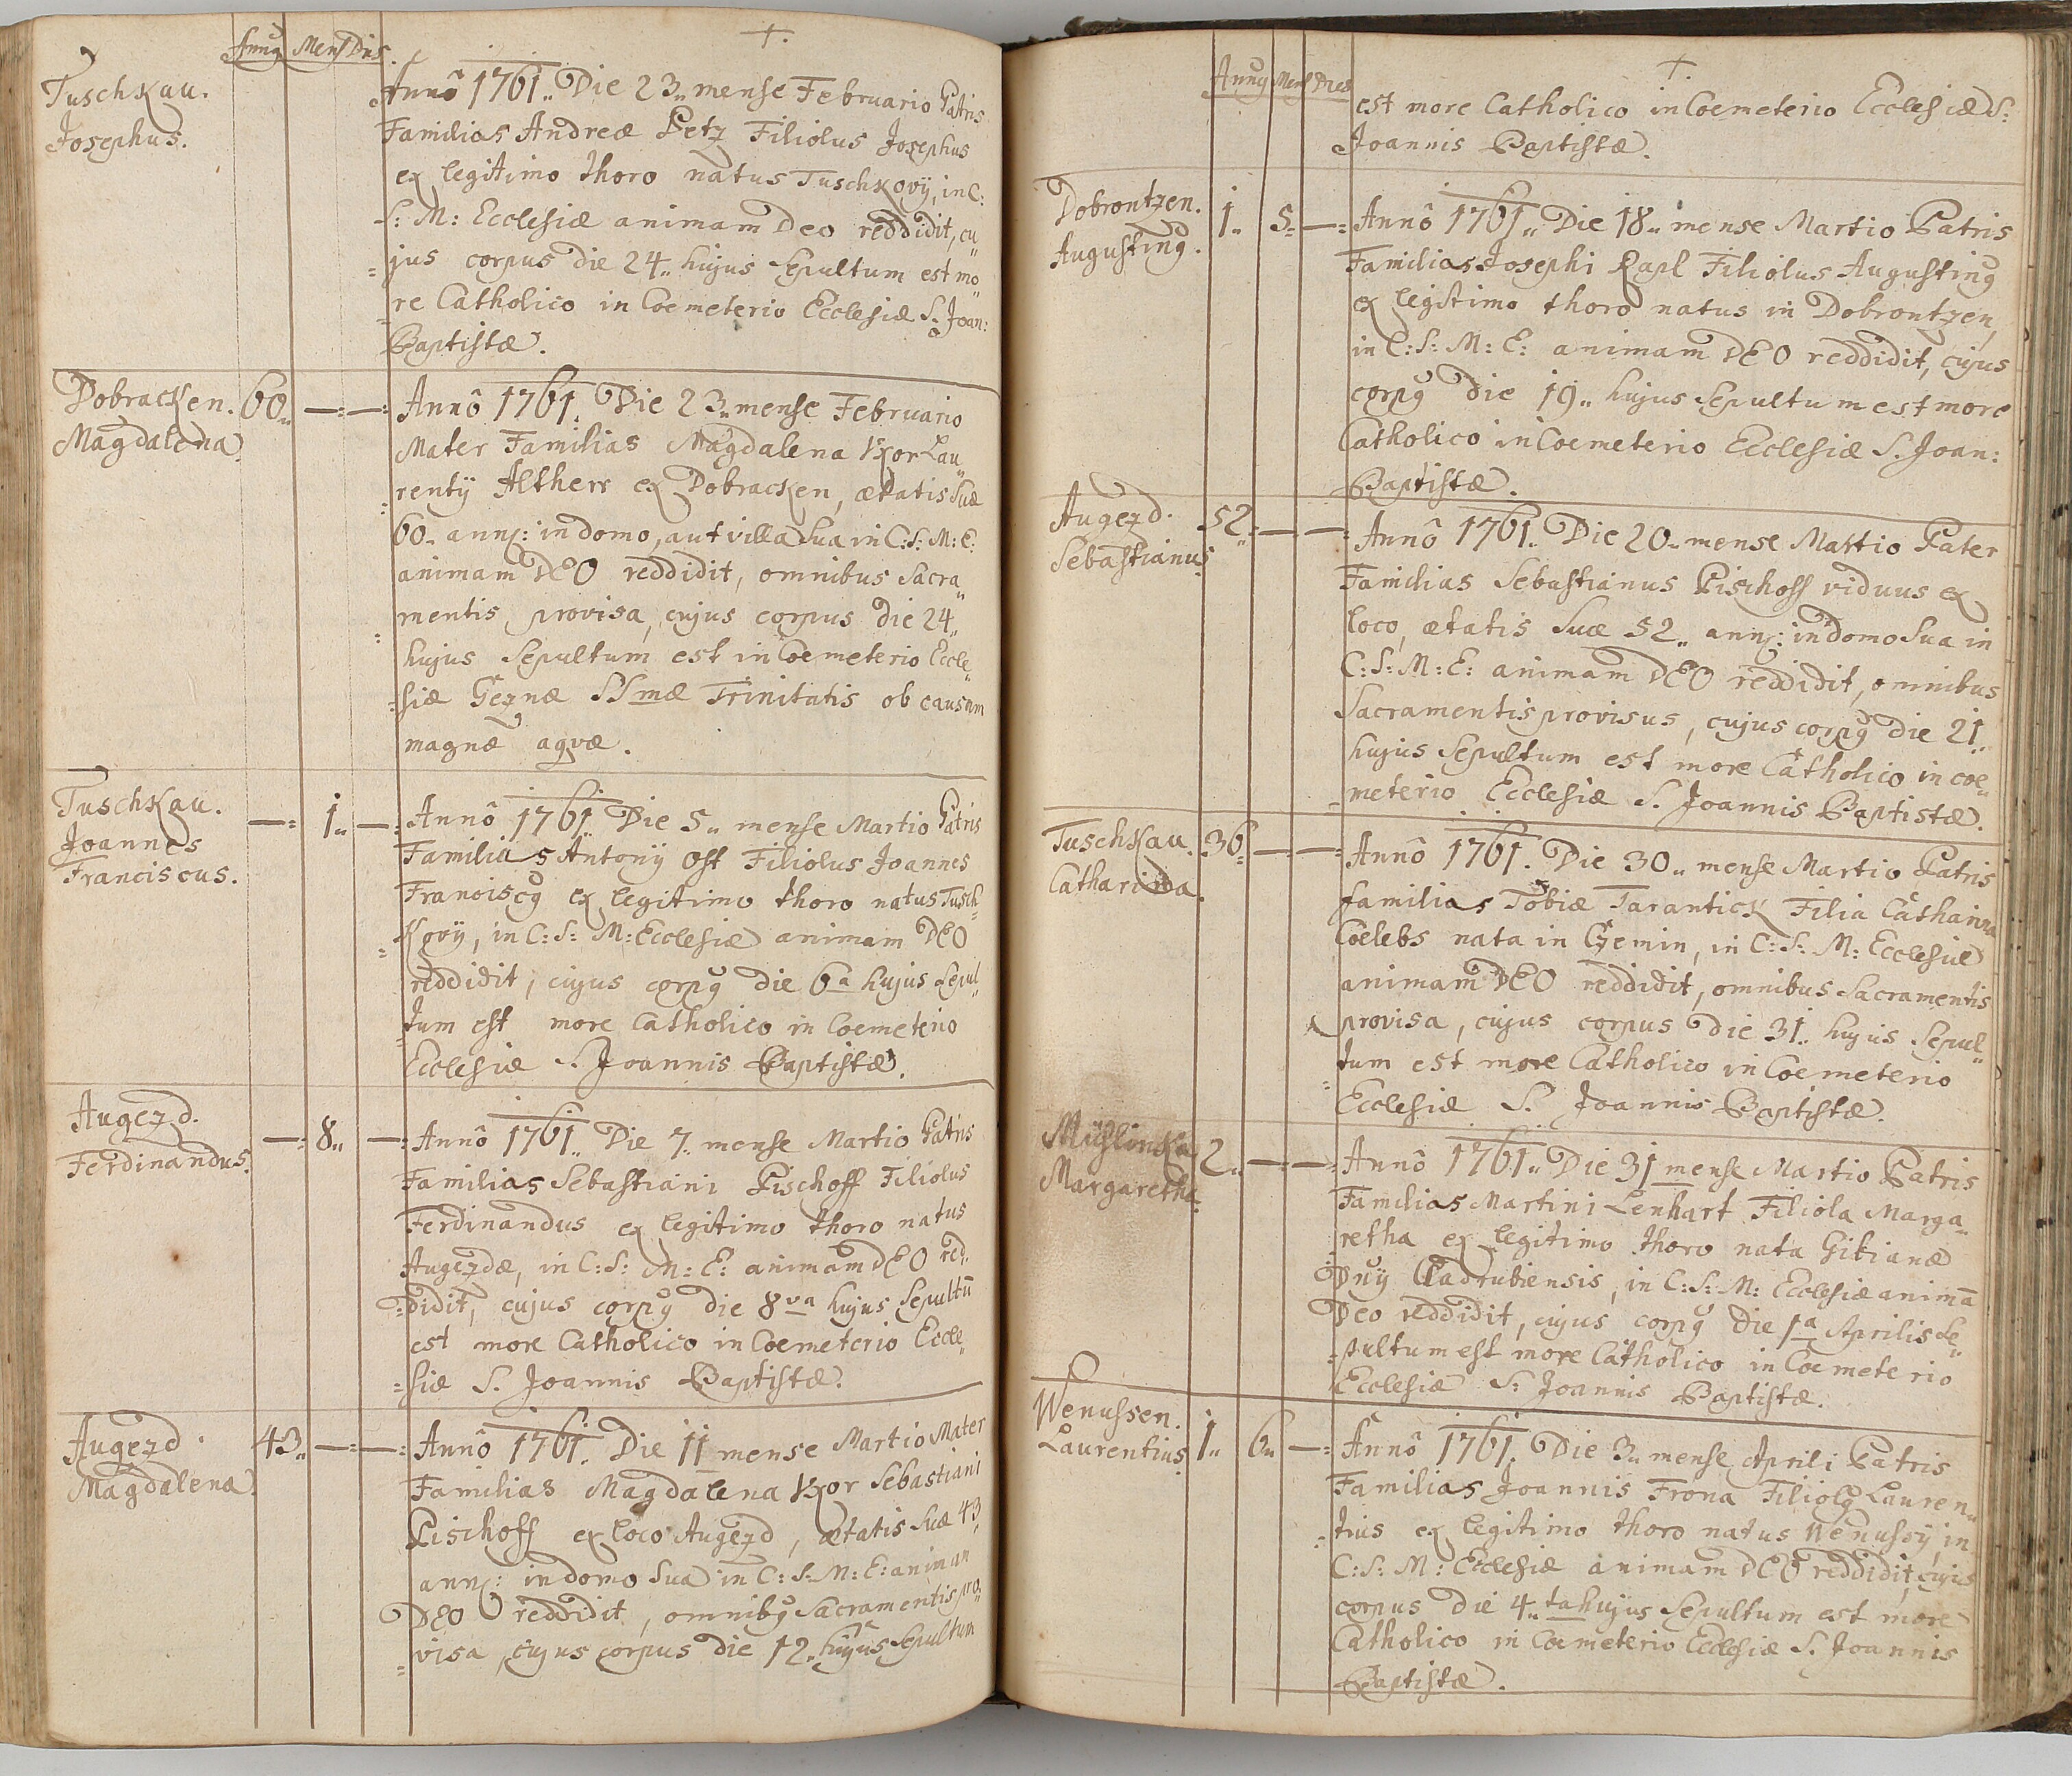 Annꝰ Mens Dies.
†.
Tuschkau.
Josephus.
Annô 1761„ Die 23„ mense Februario Patris
Familias Andreæ Petz Filiolus Josephus
ex legitimo thoro natus Tuschkovÿ, in C:
S: M: Ecclesiæ animam Deo reddidit, cu„
jus corpus die 24„ hujus Sepultum est mo„
re Catholico in Coemeterio Ecclesiæ S. Joan:
Baptistæ.
Dobracken. 60„ —:—:
Magdalena.
Annô 1761. Die 23„ mense Februario
Mater Familias Magdalena Uxor Lau„
rentÿ Altherr ex Dobracken, ætatis Suæ
60„ann: in domo, aut villa Sua in C: S: M: E:
animam DEO reddidit, omnibus Sacra„
mentis provisa, cujus corpus die 24„
hujus Sepultum est in Coemeterio Eccle„
siæ SSmæ Trinitatis ob causam
magnæ aqvæ.
Tuschkau. —: 1„ —:
Joannes
Franciscus.
Annô 1761„ Die 5„ mense Martio Patris
Familias Antonÿ Ost Filiolus Joannes
Franciscꝰ ex legitimo thoro natus Tusch„
kovÿ, in C: S: M: Ecclesiæ animam DEO
reddidit, cujus corpꝰ die 6ª hujus Sepul„
tum est more Catholico in Coemeterio
Ecclesiæ S. Joannis Baptistæ.
Augezd. —: 8„ —:
Ferdinandus.
Annô 1761„ Die 7„ mense Martio Patris
Familias Sebastiani Pischoff Filiolus
Ferdinandus ex legitimo thoro natus
Augezdæ, in C: S: M: E: animam DEO red„
didit, cujus corpꝰ die 8va hujus Sepultū
est more Catholico in Coemeterio Eccle„
siæ S. Joannis Baptistæ.
Augezd. 43„ —:—:
Magdalena.
Annô 1761. Die 11 mense Martio Mater
Familias Magdalena Uxor Sebastiani
Pischoff ex loco Augezd, ætatis Suæ 43
ann: in domo Sua in C: S: M: E: animam
DEO reddidit, omnibꝰ Sacramentis pro„
visa, cujus corpus die 12„ hujus Sepultum
Annꝰ Mens Dies
†.
est more Catholico in Coemeterio Ecclesiæ S:
Joannis Baptistæ.
Dobrontzen. 1„ 5„ —:
Augustinꝰ.
Annô 1761„ Die 18„ mense Martio Patris
Familias Josephi Rapl Filiolus Augustinꝰ
ex legitimo thoro natus in Dobrontzen,
in C: S: M: E: animam DEO reddidit, cujus
corpꝰ die 19„ hujus Sepultum est more
Catholico in Coemeterio Ecclesiæ S. Joan:
Baptistæ.
Augezd. 52„ — —
Sebastianus.
Annô 1761„ Die 20„ mense Martio Pater
Familias Sebastianus Pischoff viduus ex
loco, ætatis Suæ 52„ ann: in domo Sua in
C: S: M: E: animam DEO reddidit, omnibus
Sacramentis provisus, cujus corpꝰ die 21„
hujus Sepultum est more Catholico in coe„
meterio Ecclesiæ S. Joannis Baptistæ.
Tuschkau. 36„ — —:
Catharina.
Annô 1761. Die 30„ mense Martio Patris
familias Tobiæ Tarantick Filia Cathaina
Coelebs nata in Czemin, in C: S: M: Ecclesiæ
animam DEO reddidit, omnibus Sacramentis
provisa, cujus corpus die 31„ hujus Sepul„
tum est more Catholico in Coemeterio
Ecclesiæ S. Joannis Baptistæ.
Mühlinka 2„ — —:
Margaretha.
Annô 1761„ Die 31 mense Martio Patris
Familias Martini Lenhart Filiola Marga„
retha ex legitimo thoro nata Gibianæ
Dnÿ Cladrubiensis, in C: S: M: Ecclesiæ animā
Deo reddidit, cujus corpꝰ die 1ª Aprilis Se„
pultum est more Catholico in Coemeterio
Ecclesiæ S: Joannis Baptistæ.
Wenussen. 1„ 6„ —:
Laurentius.
Annô 1761. Die 3„ mense Aprili Patris
Familias Joannis Frona Filiolꝰ Lauren„
tius ex legitimo thoro natus Wenussÿ, in
C: S: M: Ecclesiæ animam DEO reddidit, cujus
corpus die 4„ta hujus Sepultum est more
Catholico in Coemeterio Ecclesiæ S. Joannis
Baptistæ.